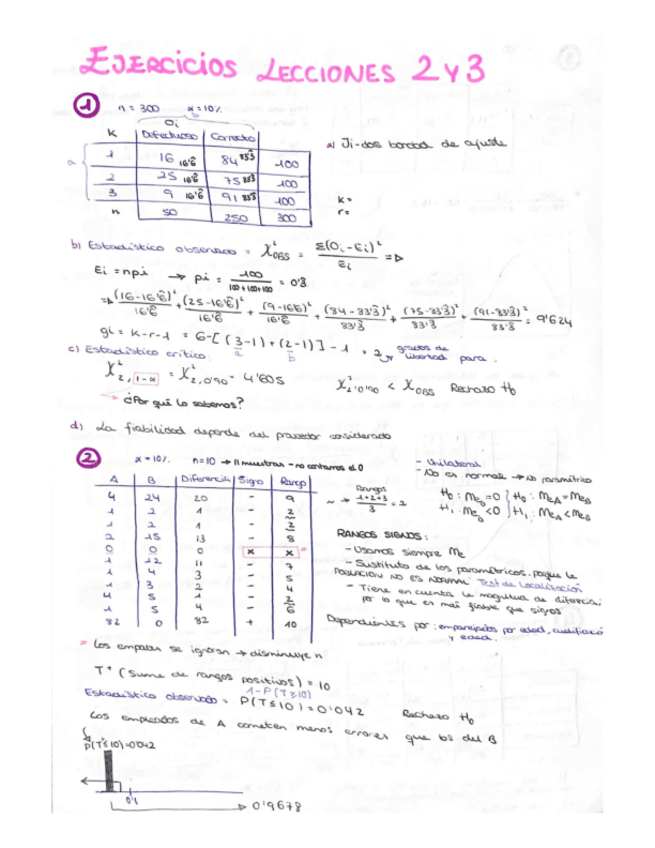 EJERCICIOS LECCIONES 2 Y 3
1 n = 300 α = 10%
b
Oi
K Defectuoso Correcto
a) Ji-dos bondad de ajuste
a
1 16 16'6 84 83'3 100
2 25 16'6 75 83'3 100
3 9 16'6 91 83'3 100
n 50 250 300
k =
r =
b) Estadístico observado = X²OBS = Σ(Oi - Ei)² / Ei =>
Ei = npi → pi = 100 / 100+100+100 = 0'3
=> (16-16'6)² / 16'6 + (25-16'6)² / 16'6 + (9-16'6)² / 16'6 + (84-83'3)² / 83'3 + (75-83'3)² / 83'3 + (91-83'3)² / 83'3 = 9'624
gL = k-r-1 = 6-[(3-1)+(2-1)]-1 = 2 grados de libertad para:
a b
c) Estadístico crítico:
X²2,1-α = X²2,0'90 = 4'605 X²2,0'90 < X²OBS Rechazo H0
¿Por qué lo sabemos?
d) La fiabilidad depende del proveedor considerado
2 α = 10% n=10 → 11 muestras - no contamos el 0
- Unilateral
- No es normal → no paramétrico
A B Diferencia Signo Rango
4 24 20 - 9
1 2 1 - 2
1 2 1 - 2
2 15 13 - 8
0 0 0 x x
1 12 11 - 7
1 4 3 - 5
1 3 2 - 4
4 5 1 - 2
1 5 4 - 6
82 0 82 + 10
Rangos
~ → 1+2+3 / 3 = 2
H0: MeD = 0 } H0: MeA = MeB
H1: MeD < 0 } H1: MeA < MeB
RANGOS SIGNOS:
- Usamos siempre Me
- Sustituto de los paramétricos. porque la
POBLACIÓN NO ES NORMAL Test de Localización
- Tiene en cuenta la magnitud de diferencia
por lo que es más fiable que signos
Dependientes por: emparejados por edad, cualificació
y edad.
* Los empates se ignoran → disminuye n
T⁺ (Suma de rangos positivos) = 10
1-P(T≥10)
Estadístico observado = P(T≤10) = 0'042 Rechazo H0
Los empleados de A cometen menos errores que los del B
P(T≤10)=0'042
0'1
0'9678